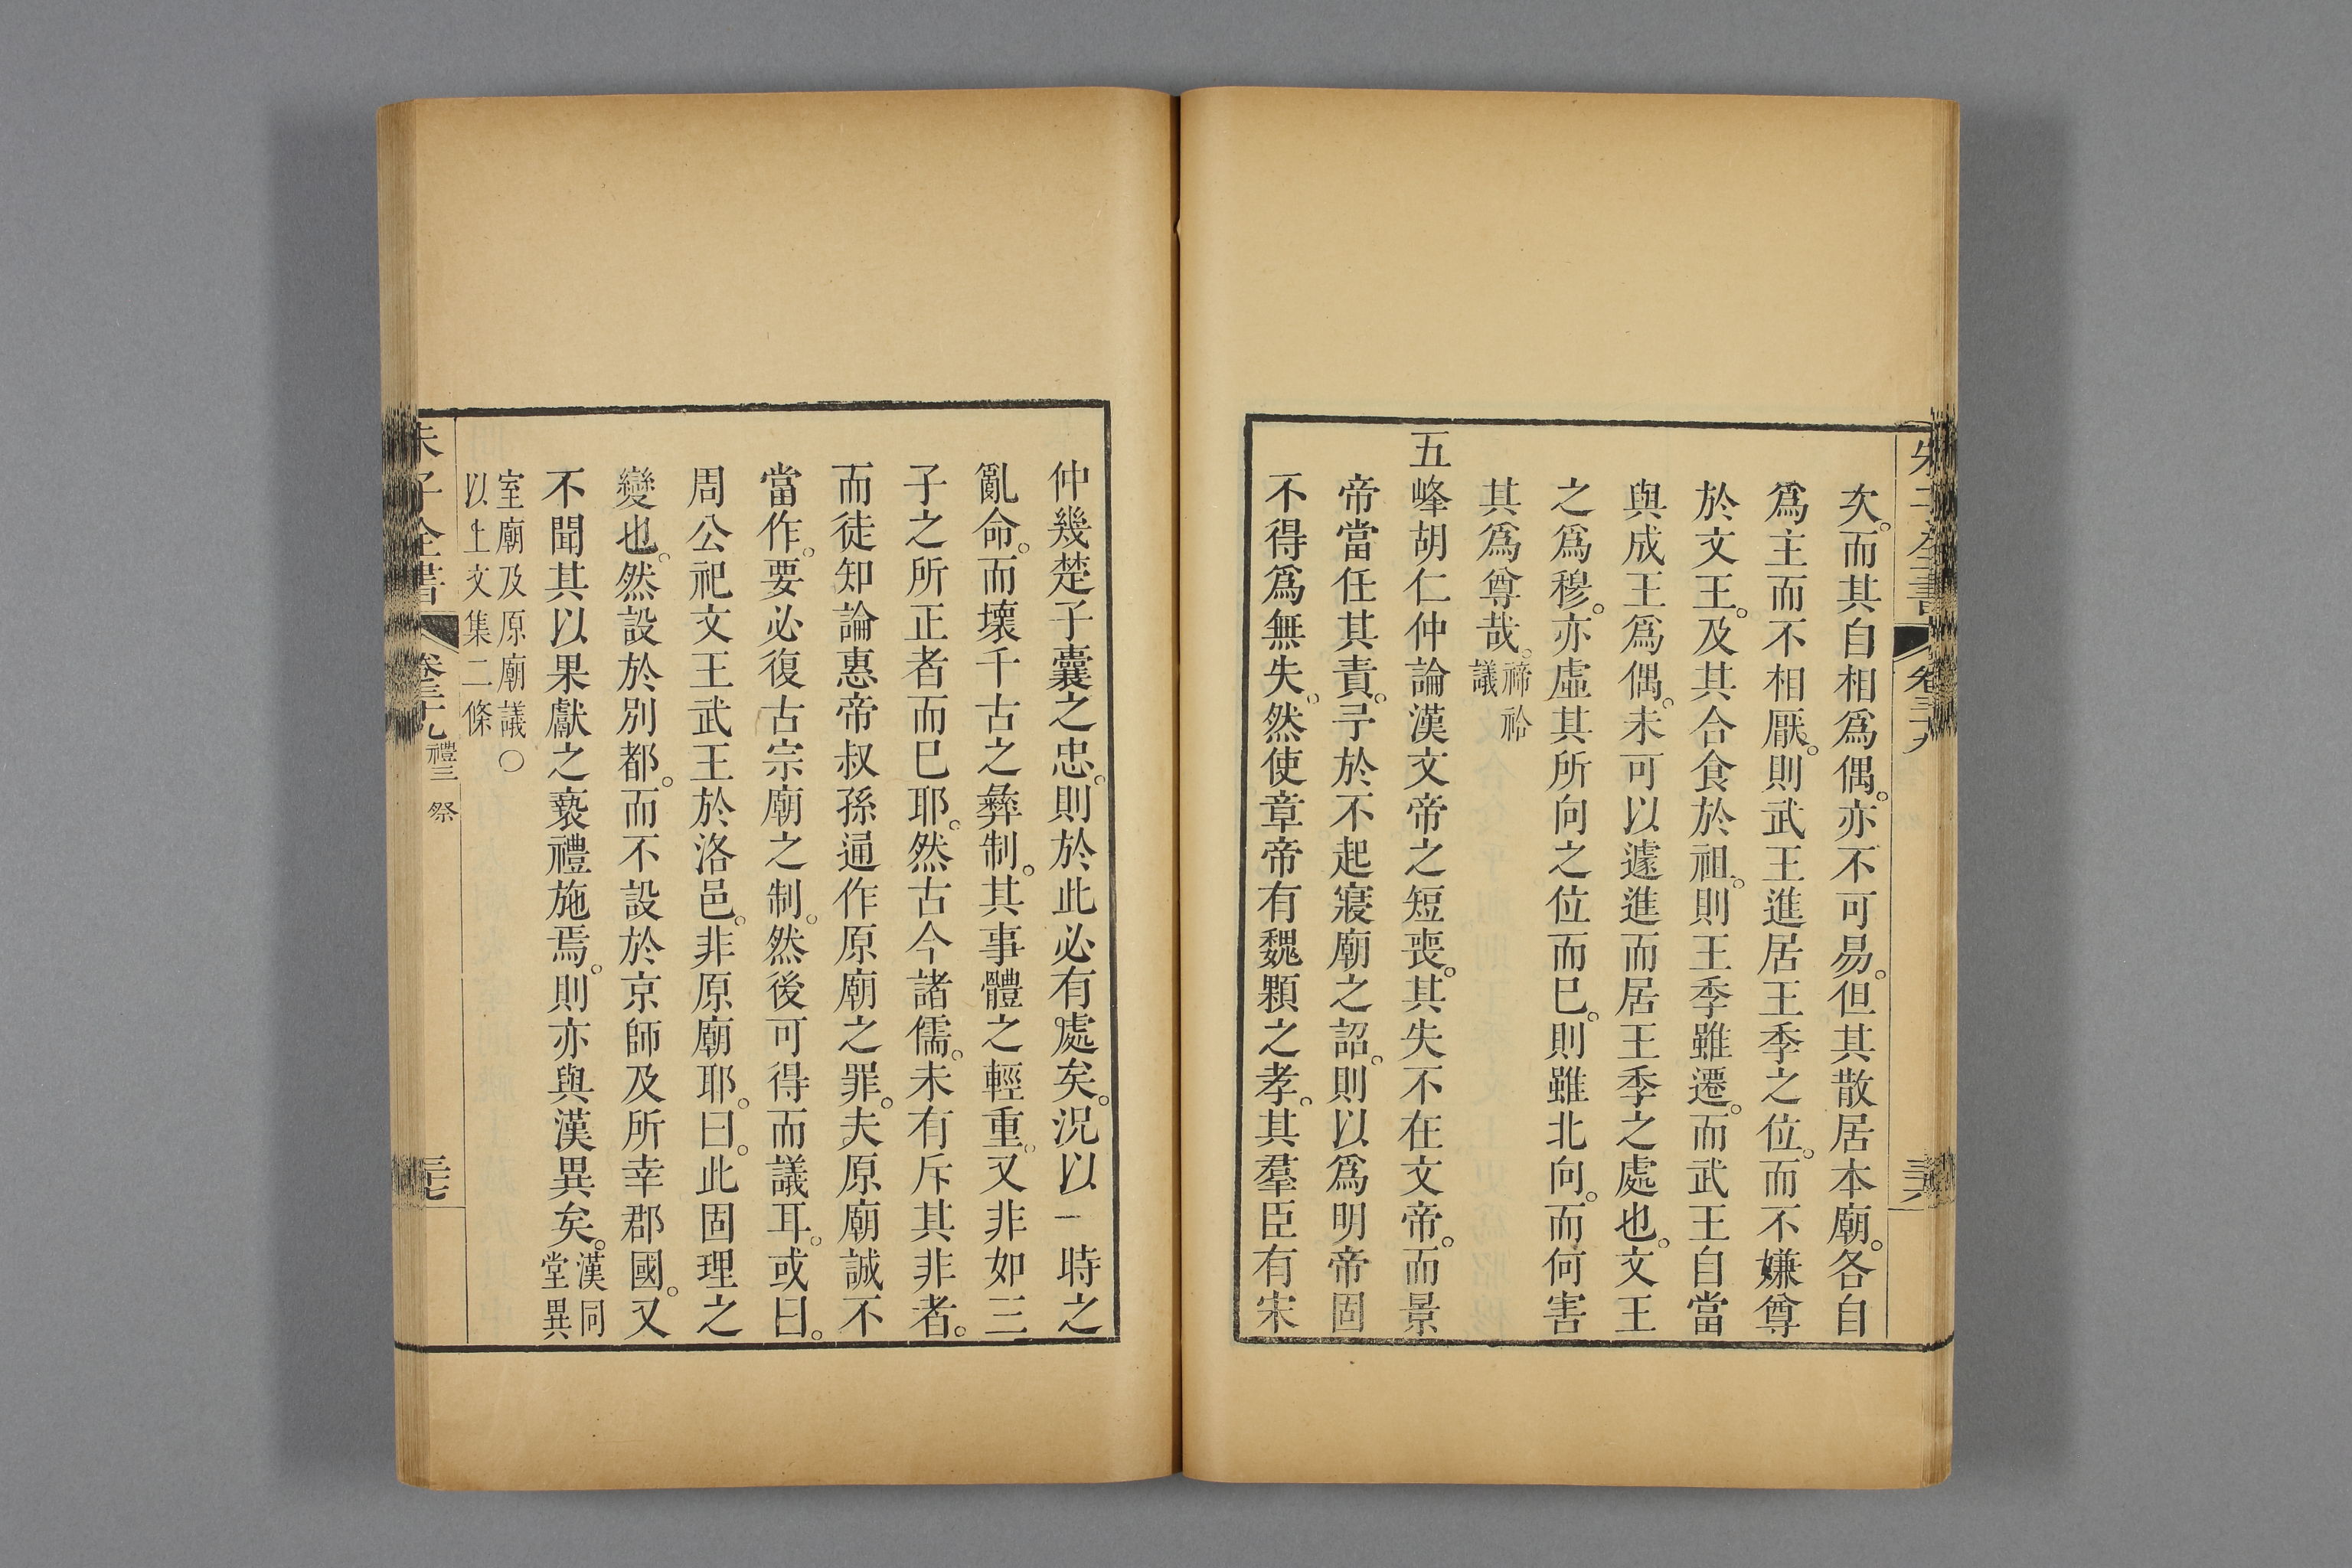 朱子全書 卷三十九 三十六
次。而其自相爲偶。亦不可易。但其散居本廟。各自
爲主而不相厭。則武王進居王季之位。而不嫌尊
於文王。及其合食於祖。則王季雖遷。而武王自當
與成王爲偶。未可以遽進而居王季之處也。文王
之爲穆。亦虛其所向之位而巳。則雖北向。而何害
其爲尊哉。禘祫議
五峰胡仁仲論漢文帝之短喪。其失不在文帝。而景
帝當任其責。予於不起寢廟之詔。則以爲明帝固
不得爲無失。然使章帝有魏顆之孝。其羣臣有宋
仲幾楚子囊之忠。則於此必有處矣。況以一時之
亂命。而壞千古之彝制。其事體之輕重。又非如三
子之所正者而巳耶。然古今諸儒。未有斥其非者。
而徒知論惠帝叔孫通作原廟之罪。夫原廟誠不
當作。要必復古宗廟之制。然後可得而議耳。或曰。
周公祀文王武王於洛邑。非原廟耶。曰。此固理之
變也。然設於別都。而不設於京師及所幸郡國。又
不聞其以果獻之褻禮施焉。則亦與漢異矣。漢同堂異
室廟及原廟議○以上文集二條
朱子全書 卷三十九 禮三 祭 三十七